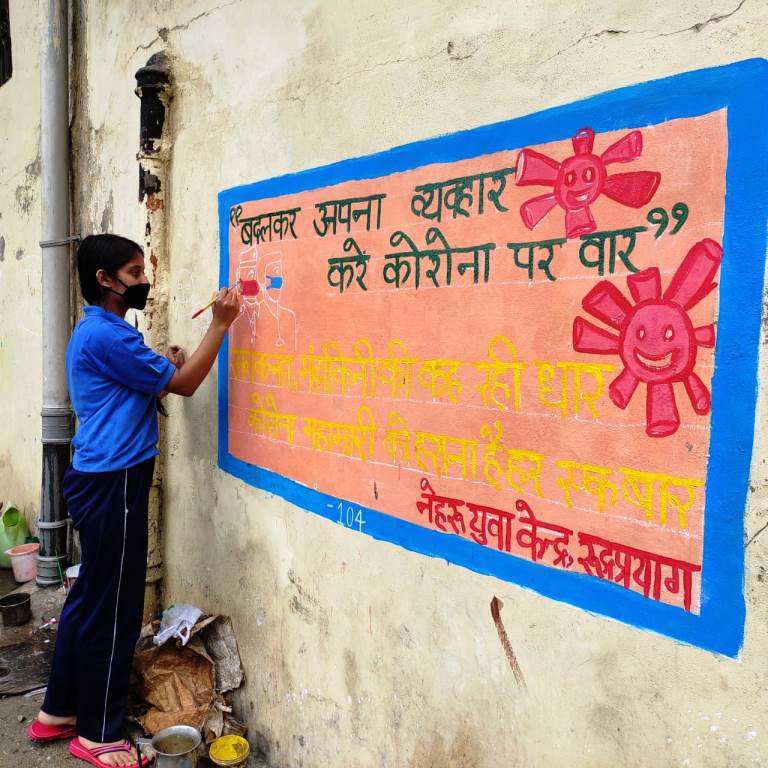 “बदलकर अपना व्यव्हार
करे कोरोना पर वार”
मंदाकिनी की कह रही धार
कोरोना महामारी को हराना है हर एक बार
नेहरू युवा केन्द्र, रूद्रप्रयाग
-104